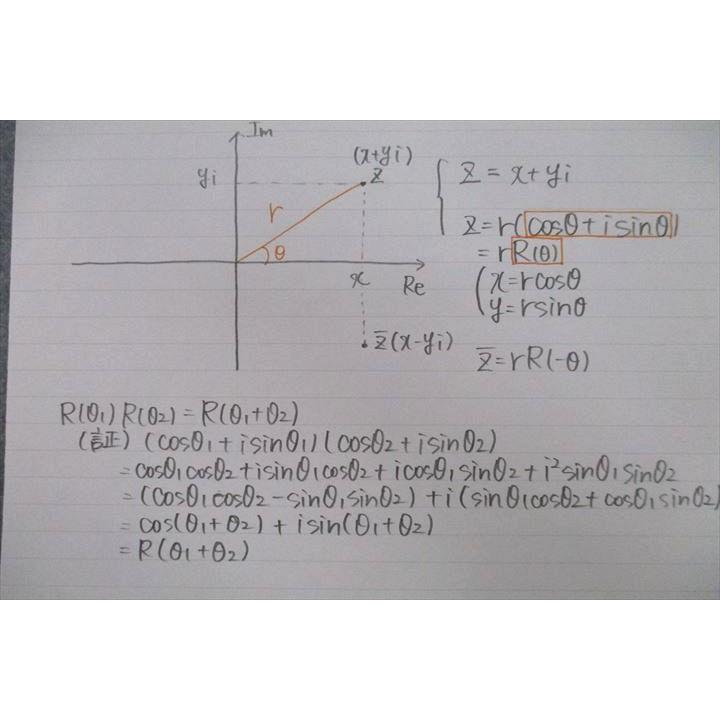 Im
(x+yi)
yi
z
r
θ
x
Re
z̅(x-yi)
z = x+yi
z=r(cosθ+isinθ)
=rR(θ)
x=rcosθ
y=rsinθ
z̅=rR(-θ)
R(θ₁)R(θ₂)=R(θ₁+θ₂)
(証) (cosθ₁+isinθ₁)(cosθ₂+isinθ₂)
=cosθ₁cosθ₂+isinθ₁cosθ₂+icosθ₁sinθ₂+i²sinθ₁sinθ₂
=(cosθ₁cosθ₂-sinθ₁sinθ₂)+i(sinθ₁cosθ₂+cosθ₁sinθ₂)
=cos(θ₁+θ₂)+isin(θ₁+θ₂)
=R(θ₁+θ₂)